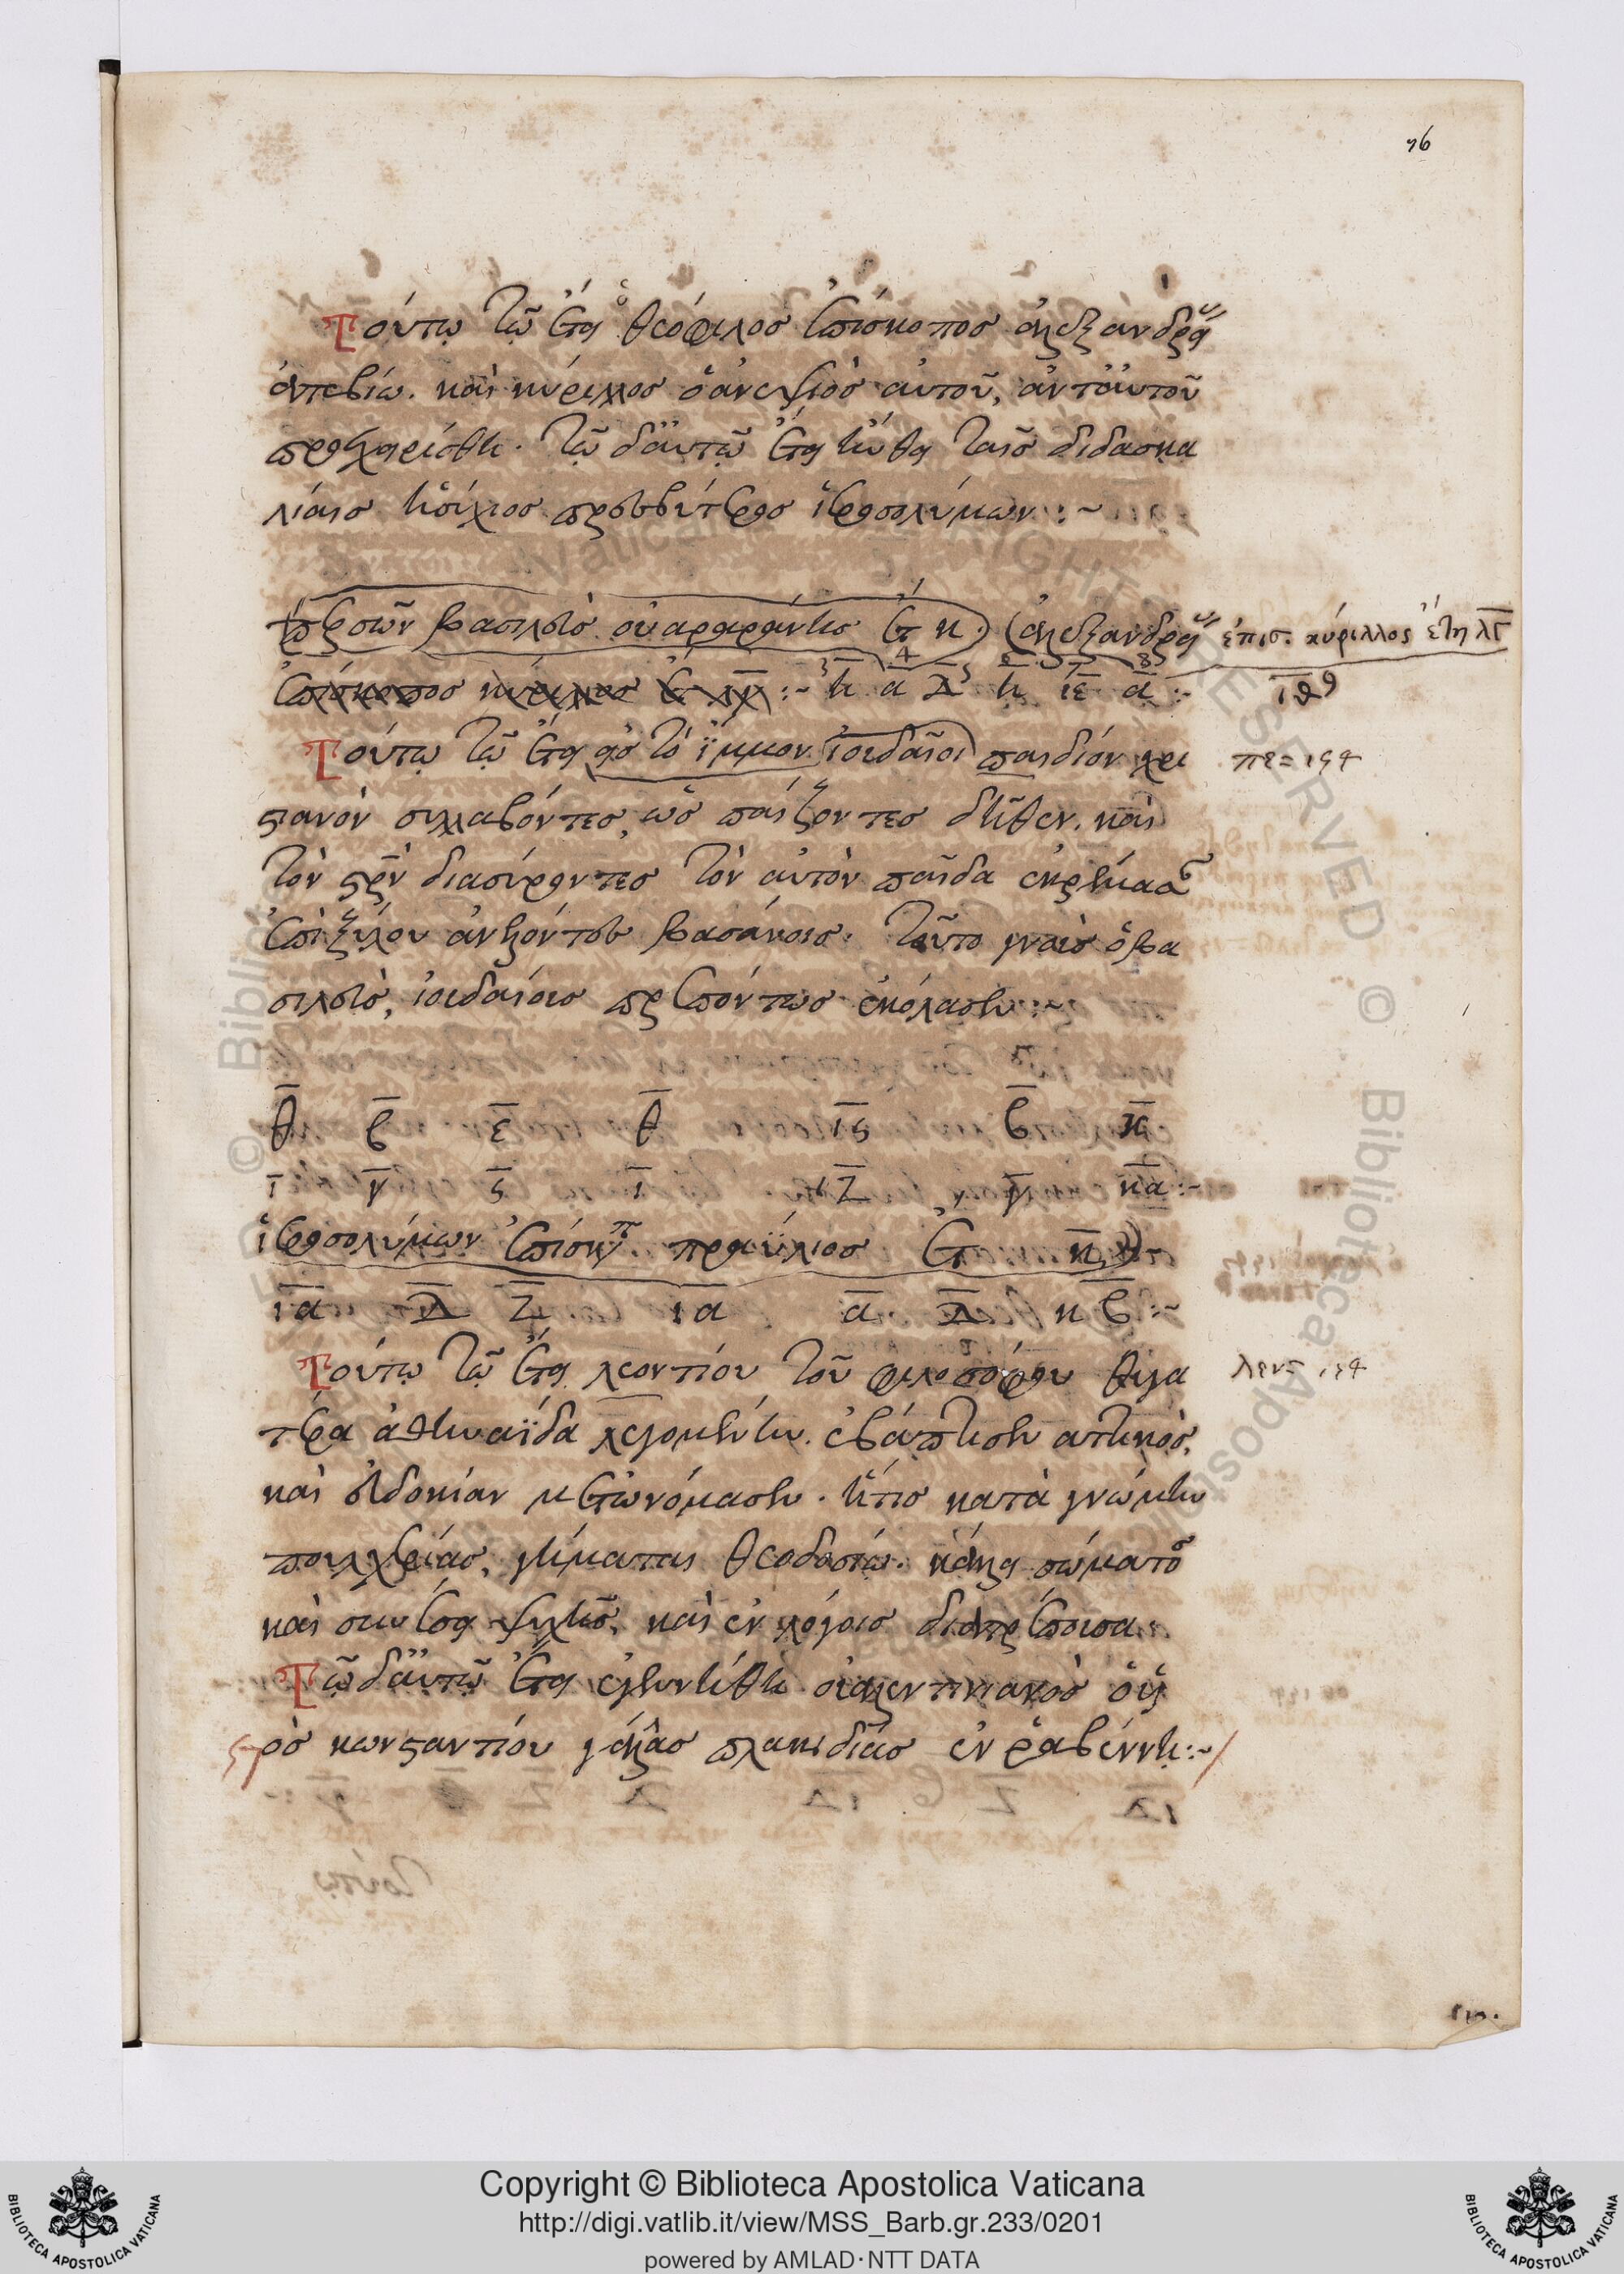 96
Τούτῳ τῷ ἔτει ὁ θεόφιλος ἐπίσκοπος ἀλεξανδρείας
ἀπεβίω. καὶ κύριλλος ὁ ἀνεψιὸς αὐτοῦ, ἀντ' αὐτοῦ
προεχειρίσθη. τῷ δ' αὐτῷ ἔτει ἤνθει ταῖς διδασκα
λίαις ἡσύχιος πρεσβύτερος ἱεροσολύμων :~
περσῶν βασιλεὺς οὐαραράνης ἔτ κ. ἀλεξανδρείας ἐπισ. κύριλλος ἔτη λ̅γ̅
ἐπίσκοπος κύριλλος
η̅ α̅ δ̅ η̅ ι̅ε̅ α̅ :~ ι̅θ̅
Τούτῳ τῷ ἔτει εἰς τὸ ἴμμον ἰουδαῖοι παιδίον χρι
στιανὸν συλλαβόντες, ὡς παίζοντες δῆθεν. καὶ
τὸν σρν διασύροντες τὸν αὐτὸν παῖδα ἐκρέμασαν
ἐπὶ ξύλου ἀνελόντες βασάνοις. τοῦτο γνοὺς ὁ βα
σιλεὺς, ἰουδαίους πρεπόντως ἐκόλασεν :~
θ̅ β̅ ε̅ θ̅ ι̅ς̅ β̅ κ̅
ι̅ γ̅ ς̅ ι̅ ι̅ζ̅ γ̅ κ̅α̅ :~
ἱεροσολύμων ἐπίσκοπ πραΰλιος ἔτ κ̅
ι̅α̅ δ̅ ζ̅ ι̅α̅ α̅ δ̅ κ̅β̅ :~
Τούτῳ τῷ ἔτει λεοντίου τοῦ φιλοσόφου θυγα
τέρα ἀθηναΐδα λεγομένην. ἐβάπτισεν ἀττικὸς,
καὶ εὐδοκίαν μετωνόμασεν. ἥτις κατὰ γνώμην
πουλχερίας, γήμαται θεοδοσίῳ. κάλλει σώματος
καὶ συνέσει ψυχῆς, καὶ ἐν λόγοις διαπρέπουσα.
Τῷ δ' αὐτῷ ἔτει ἐγεννήθη οὐαλεντινιανὸς ὁ ὕς
ρος κωνσταντίου γάλλας πλακιδίας ἐν ῥαβέννῃ :~
Copyright © Biblioteca Apostolica Vaticana
http://digi.vatlib.it/view/MSS_Barb.gr.233/0201
powered by AMLAD·NTT DATA
BIBLIOTECA APOSTOLICA VATICANA
BIBLIOTECA APOSTOLICA VATICANA